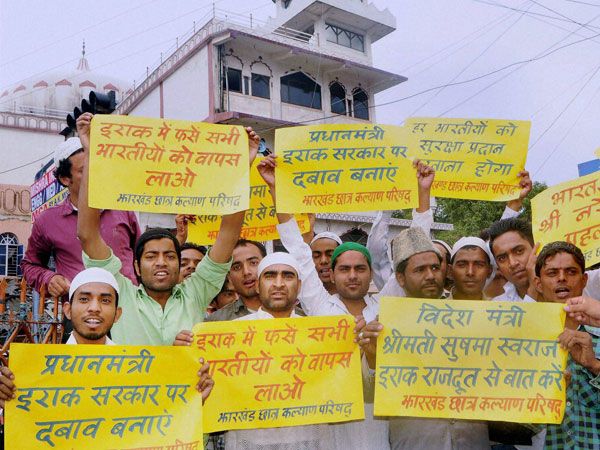 इराक में फसें सभी
भारतीयों को वापस
लाओ
झारखंड छात्र कल्याण परिषद्
प्रधानमंत्री
इराक सरकार पर
दबाव बनाएं
झारखंड छात्र कल्याण परिषद्
हर भारतीयों को
सुरक्षा प्रदान
होगा
छात्र कल्याण परिषद्
भारत
श्री
प्रधानमंत्री
इराक सरकार पर
दबाव बनाएं
झारखंड छात्र कल्याण
इराक में फसें सभी
भारतीयों को वापस
लाओ
झारखंड छात्र कल्याण परिषद्
विदेश मंत्री
श्रीमती सुषमा स्वराज
इराक राजदूत से बात करें
झारखंड छात्र कल्याण परिषद्